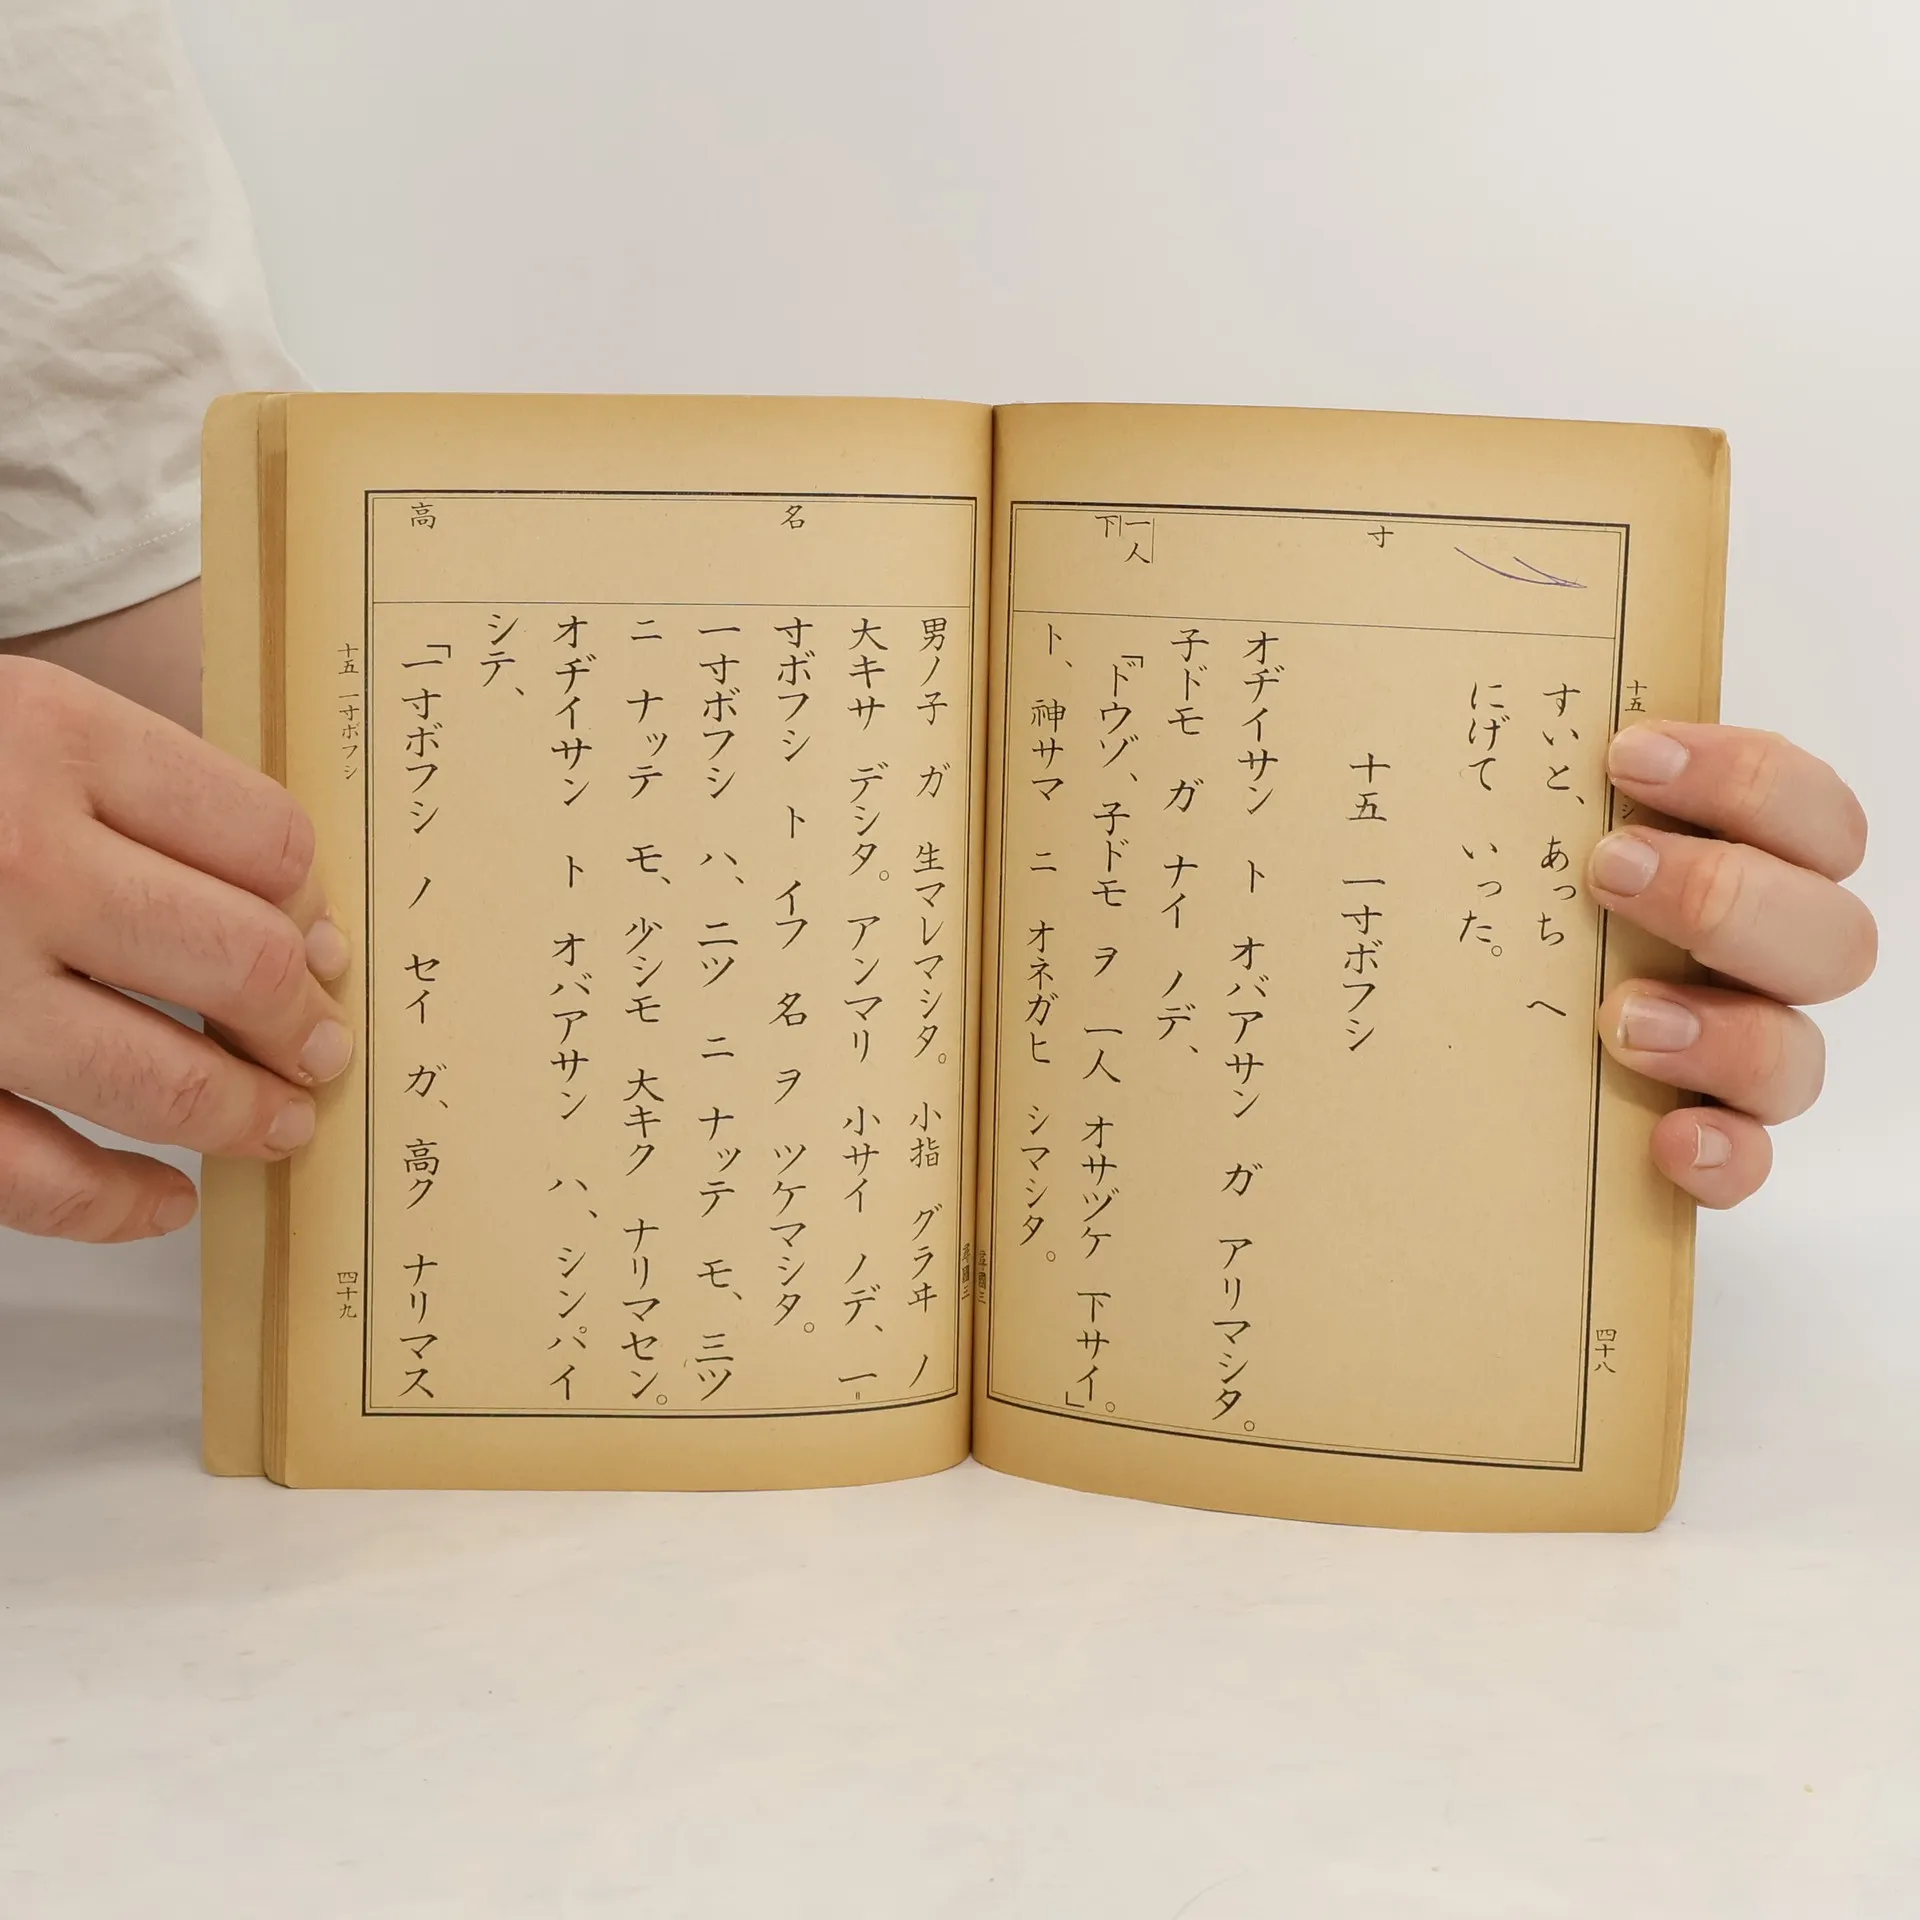 寸
一人
下
十五
シ
四十八
すいと、あっち へ
にげて いった。
十五 一寸ボフシ
オヂイサン ト オバアサン ガ アリマシタ。
子ドモ ガ ナイ ノデ、
「ドウゾ、子ドモ ヲ 一人 オサヅケ 下サイ」。
ト、神サマ ニ オネガヒ シマシタ。
名
高
男ノ子 ガ 生マレマシタ。小指 グラヰ ノ
大キサ デシタ。アンマリ 小サイ ノデ、一
寸ボフシ ト イフ 名 ヲ ツケマシタ。
一寸ボフシ ハ、二ツ ニ ナッテ モ、三ツ
ニ ナッテ モ、少シモ 大キク ナリマセン。
オヂイサン ト オバアサン ハ、シンパイ
シテ、
「一寸ボフシ ノ セイ ガ、高ク ナリマス
十五 一寸ボフシ
四十九